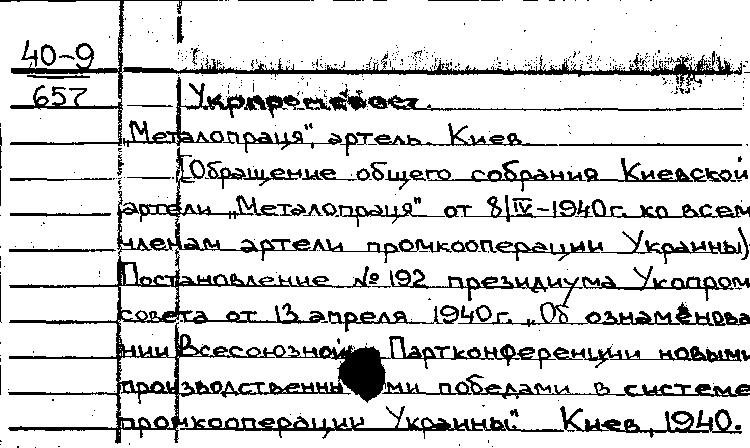 40-9
657
Укрпромсовет.
„Металопраця", артель. Киев
[Обращение общего собрания Киевской
артели „Металопраця" от 8/IV-1940г. ко всем
членам артели промкооперации Украины)
Постановление № 192 президиума Укопром
совета от 13 апреля 1940г. „Об ознаменова
нии Всесоюзной Партконференции новыми
производственными победами в системе
промкооперации Украины". Киев, 1940.